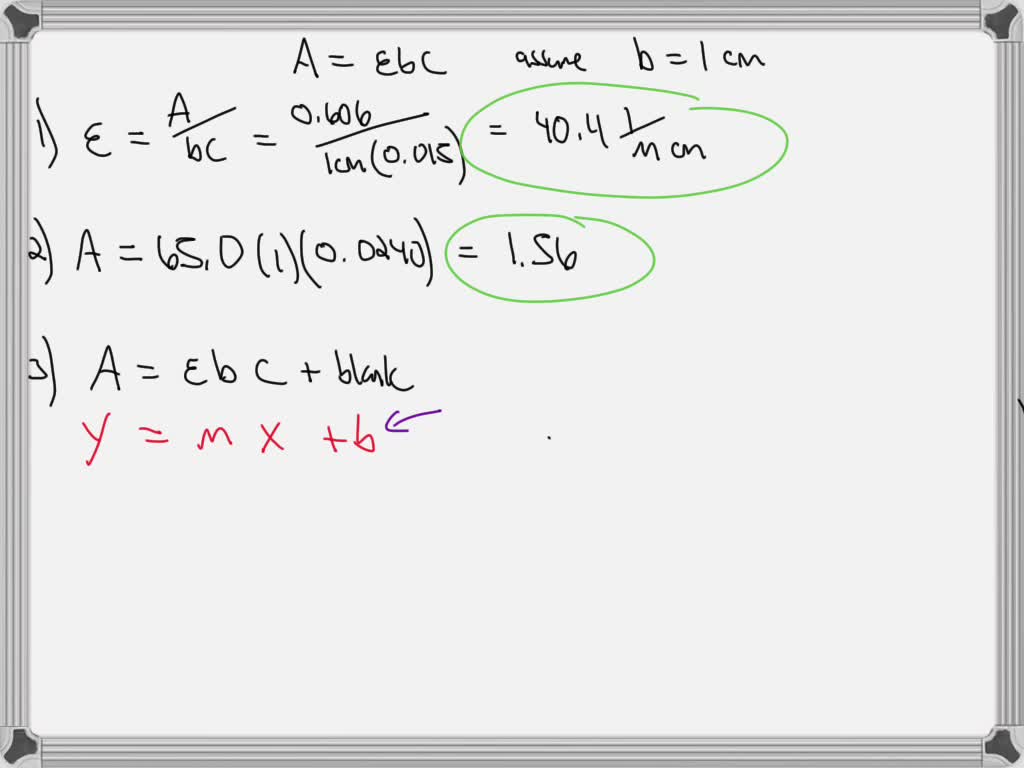 A = εbC assume b = 1 cm
1) ε = A/bC = 0.606/1cm(0.015) = 40.4 1/M cm
2) A = 65.0(1)(0.0240) = 1.56
3) A = εbC + blank
y = mx + b